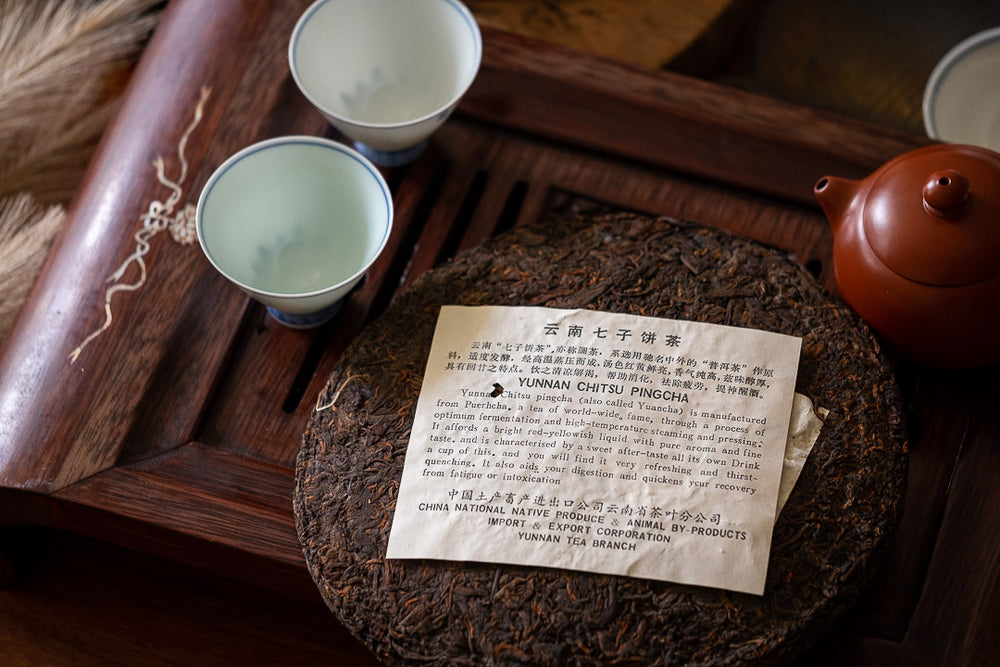 云南七子饼茶
云南“七子饼茶”，亦称圆茶，系选用驰名中外的“普洱茶”作原
料，适度发酵，经高温蒸压而成，汤色红黄鲜亮，香气纯高，滋味醇厚，
具有回甘之特点。饮之清凉解渴，帮助消化，祛除疲劳，提神醒酒。
YUNNAN CHITSU PINGCHA
Yunnan Chitsu pingcha (also called Yuancha) is manufactured
from Puerhcha. a tea of world-wide. fame, through a process of
optimum fermentation and high-temperature steaming and pressing.
It affords a bright red-yellowish liquid with pure aroma and fine
taste. and is characterised by a sweet after-taste all its own Drink
a cup of this. and you will find it very refreshing and thirst-
quenching. It also aids your digestion and quickens your recovery
from fatigue or intoxication
中国土产畜产进出口公司云南省茶叶分公司
CHINA NATIONAL NATIVE PRODUCE & ANIMAL BY-PRODUCTS
IMPORT & EXPORT CORPORATION
YUNNAN TEA BRANCH